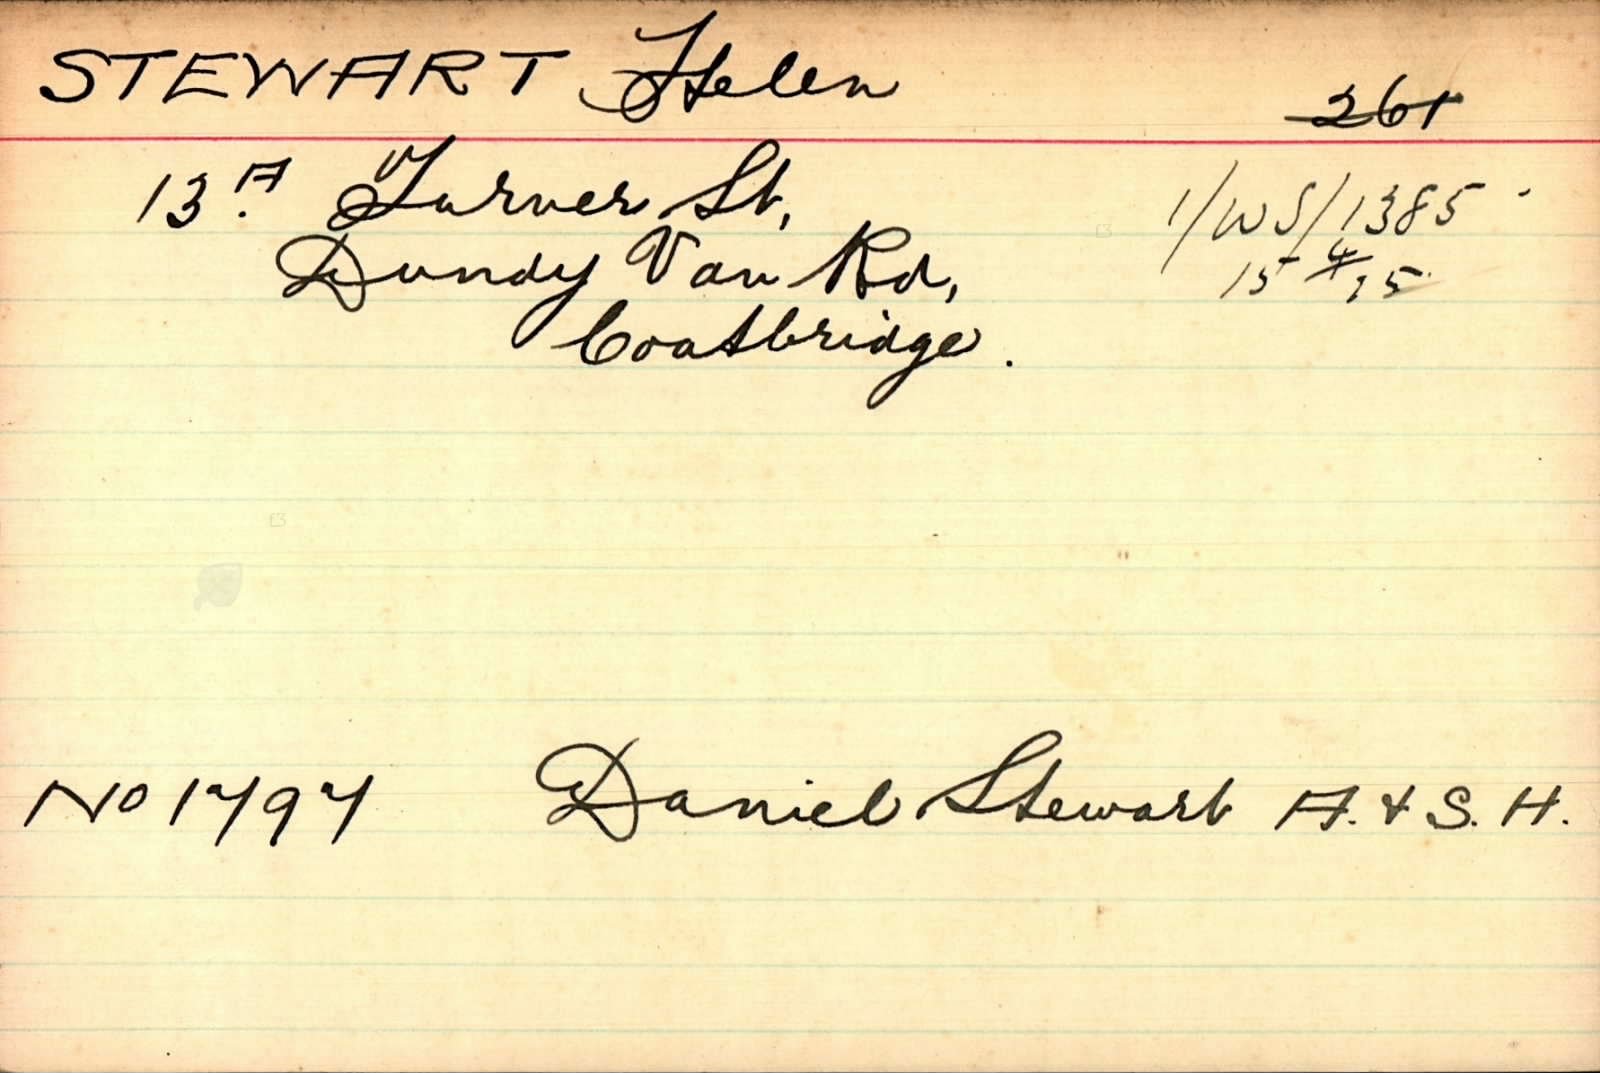 STEWART Helen
261
13A Turner St,
1/WS/1385
Dundy Van Rd,
15/4/15
Coatbridge.
No 17197 Daniel Stewart A. & S. H.